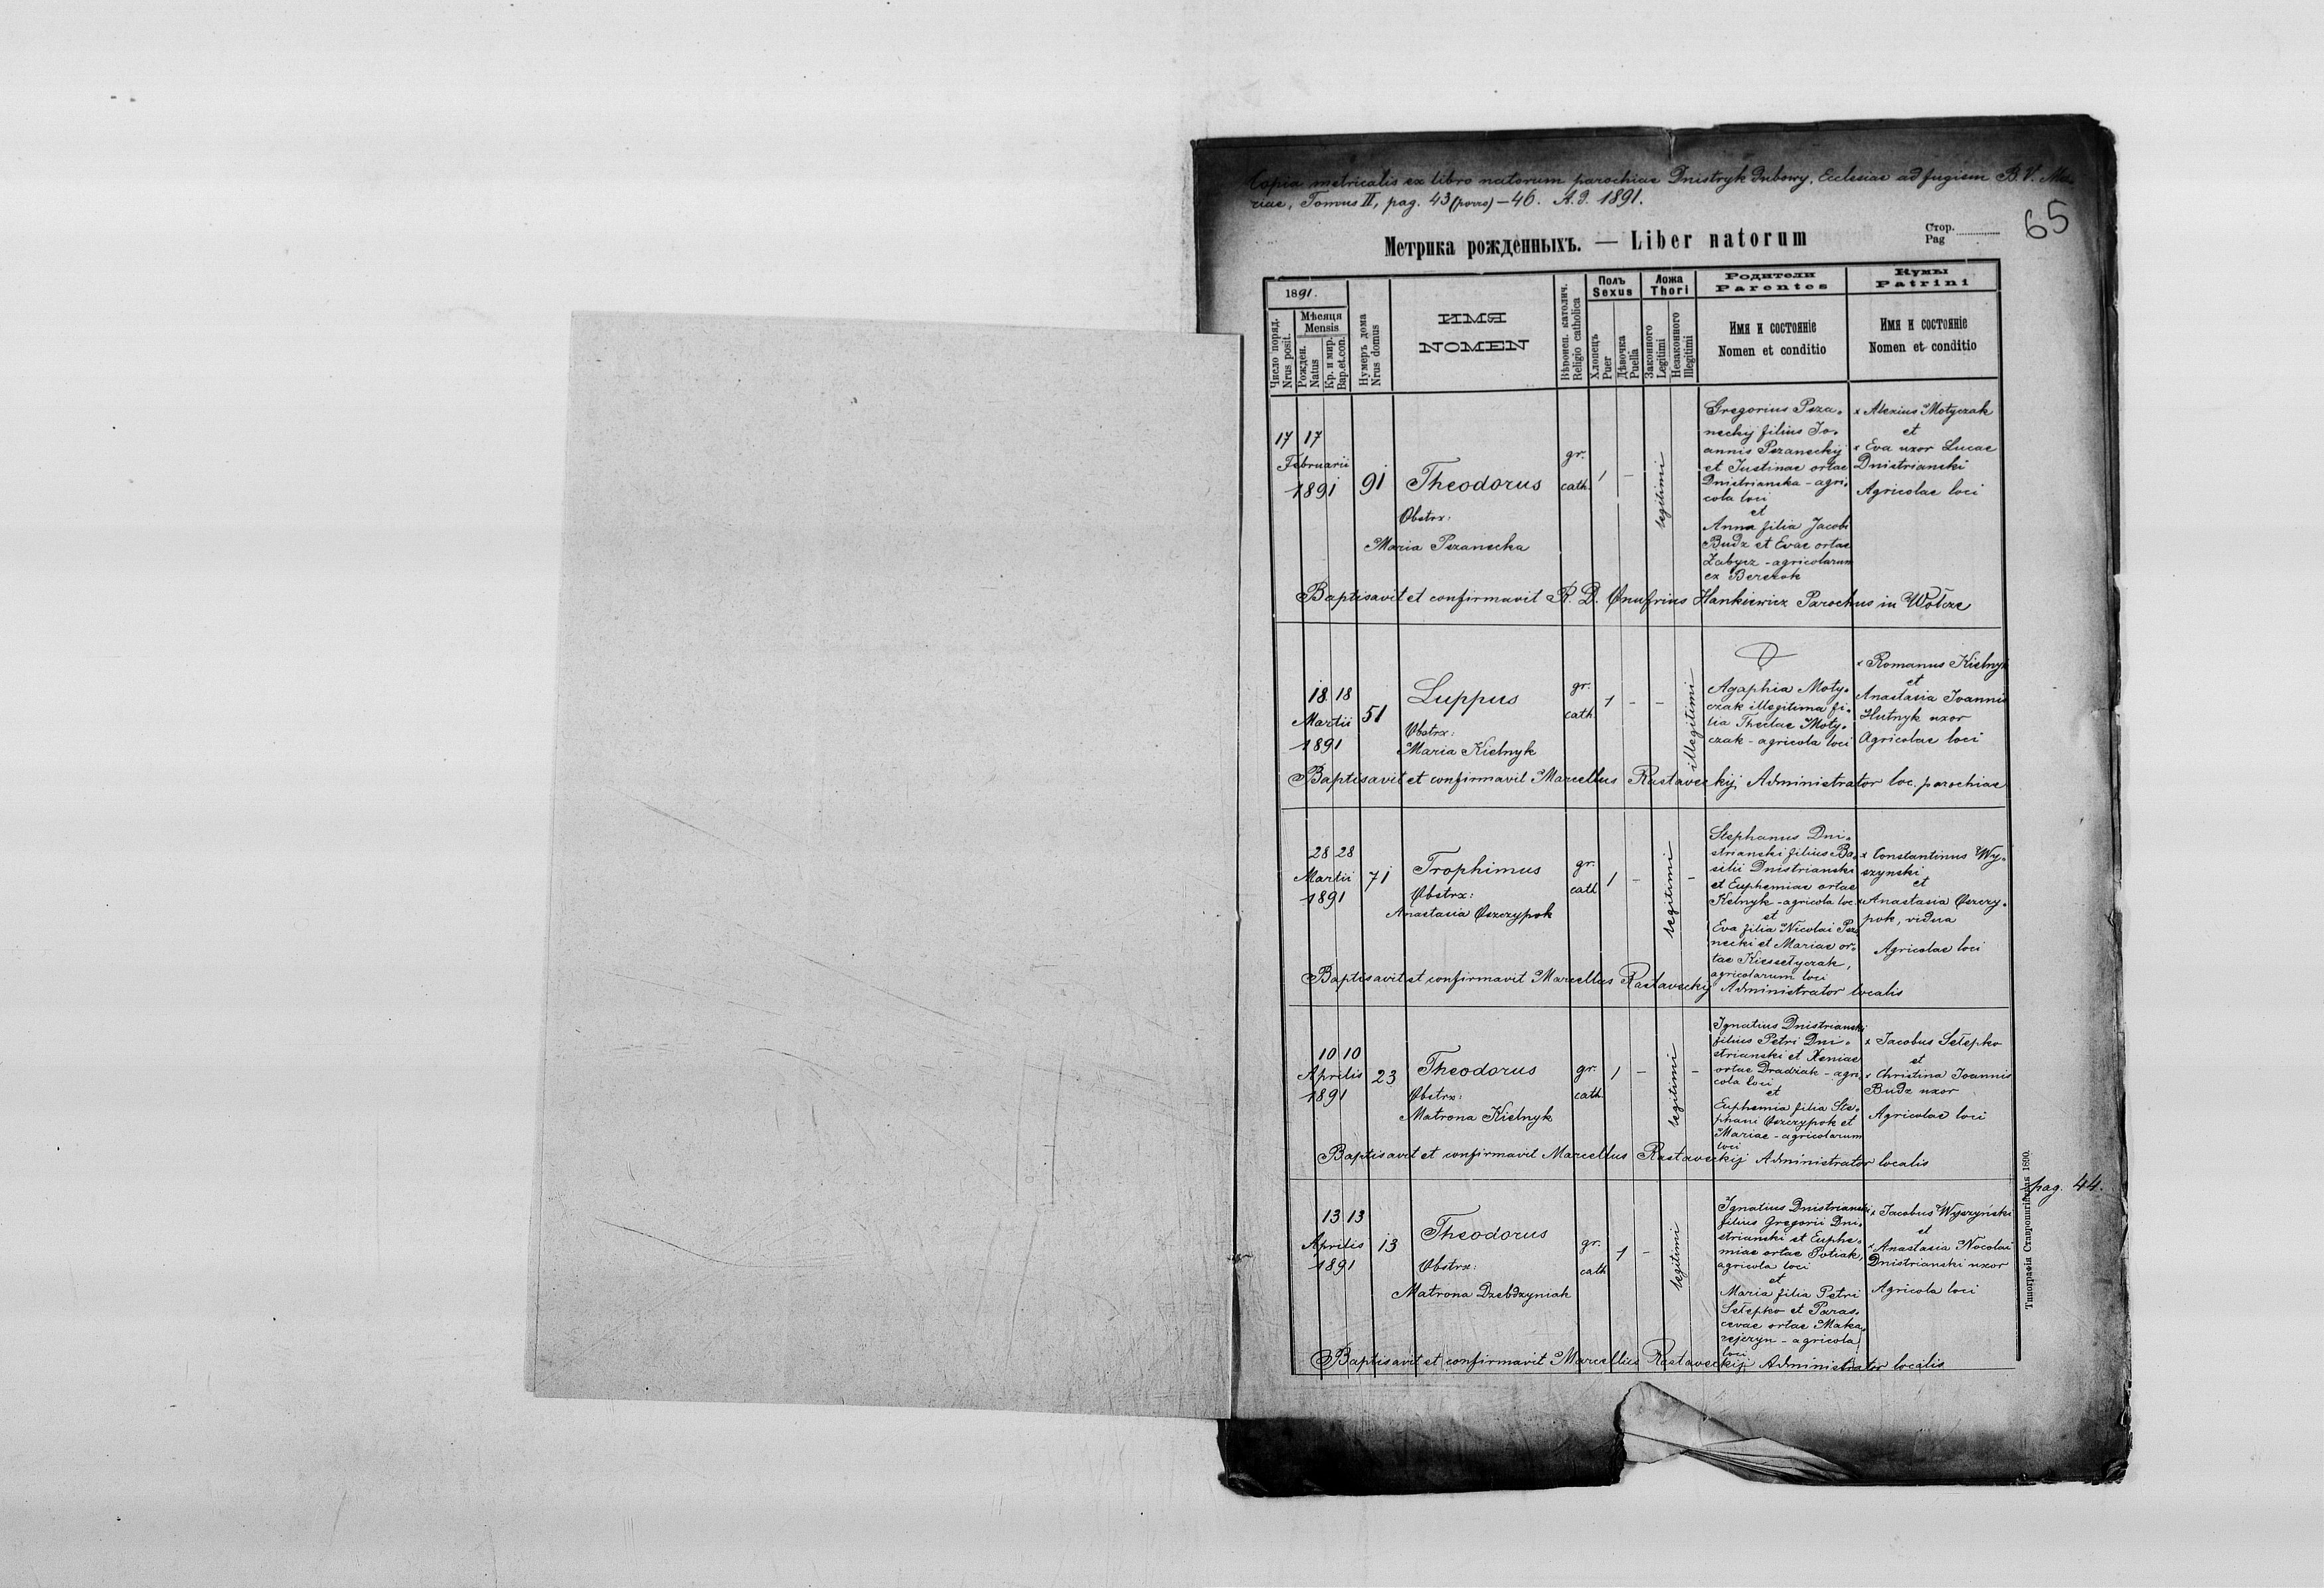 Copia metricalis ex libro natorum parochiae Dnistryk dubowy, Ecclesiae ad fugiem B. V. Ma-
riae, Tomus II, pag. 43 (porro) – 46. A. d. 1891.
65
Метрика рожденныхъ. — Liber natorum
Стор.
Pag
1891.
Число поряд.
Nrus posit.
Мѣсяця
Mensis
Рожден.
Natus
Кр. и мир.
Bap.et.con.
Нумеръ дома
Nrus domus
ИМЯ
NOMEN
Вѣроисп. католич.
Religio catholica
Полъ
Sexus
Хлопецъ
Puer
Дѣвочка
Puella
Ложа
Thori
Законного
Legitimi
Незаконного
Illegitimi
Родители
Parentes
Имя и состоянiе
Nomen et conditio
Кумы
Patrini
Имя и состоянiе
Nomen et conditio
17 17
Februarii
1891
91
Theodorus
Obstrx:
Maria Pszanecka
gr.
cath.
1
–
legitimi
Gregorius Psza-
neckij filius Jo-
annis Pszaneckij
et Justinae ortae
Dnistrianska - agri-
cola loci
et
Anna filia Jacobi
Budz et Evae ortae
Zabycz - agricolarum
ex Berezok
x Alexius Motyczak
et
x Eva uxor Lucae
Dnistrianski
Agricolae loci
Baptisavit et confirmavit R. D. Onufrius Hankiewicz Parochus in Wołcze
18 18
Martii
1891
51
Luppus
Obstrx:
Maria Kielnyk
gr.
cath.
1
–
–
illegitimi
Agaphia Moty-
czak illegitima fi-
lia Theclae Moty-
czak - agricola loci
x Romanus Kielnyk
et
Anastasia Joannis
Hutnyk uxor
Agricolae loci
Baptisavit et confirmavit Marcellus Rastaveckij Administrator loc. parochiae
28 28
Martii
1891
71
Trophimus
Obstrx:
Anastasia Oszczypok
gr.
cath.
1
–
legitimi
–
Stephanus Dni-
strianski filius Ba-
silii Dnistrianski
et Euphemiae ortae
Kelnyk - agricola loc.
et
Eva filia Nicolai Psza
necki et Mariae or-
tae Kiessełyczak,
agricolarum loci
x Constantinus Wy-
szynski
et
x Anastasia Oszczy-
pok, vidua
Agricolae loci
Baptisavit et confirmavit Marcellus Rastaveckij Administrator localis
10 10
Aprilis
1891
23
Theodorus
Obstrx:
Matrona Kielnyk
gr.
cath.
1
–
legitimi
–
Ignatius Dnistrianski
filius Petri Dni-
strianski et Xeniae
ortae Dradziak - agri-
cola loci
et
Euphemia filia Ste-
phani Oszczypok et
Mariae - agricolarum
loci
x Jacobus Sełepko
et
x Christina Joannis
Budz uxor
Agricolae loci
Baptisavit et confirmavit Marcellus Rastaveckij Administrator localis
pag. 44.
13 13
Aprilis
1891
13
Theodorus
Obstrx:
Matrona Dzebdzyniak
gr.
cath
1
–
legitimi
Ignatius Dnistrianski
filius Gregorii Dni-
strianski et Euphe-
miae ortae Potiak,
agricola loci
et
Maria filia Petri
Sełepko et Paras-
cevae ortae Maka-
rejczyn - agricola
loci
x Jacobus Wyszyński
et
x Anastasia Nocolai
Dnistrianski uxor
Agricola loci
Baptisavit et confirmavit Marcellus Rastaveckij Administrator localis
Типографiя Ставропигiйская 1890.